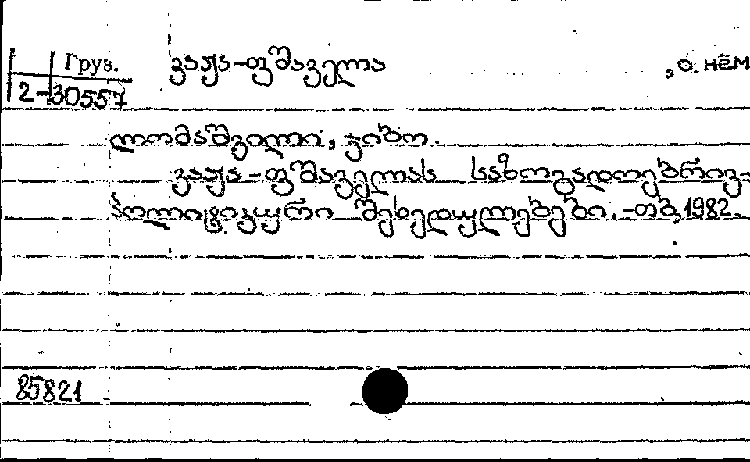 Груз.
ვაჟა-ფშაველა
, о. нём
2-30557
ლომაშვილი, ჯიბო.
ვაჟა-ფშაველას საზოგადოებრივ-
პოლიტიკური შეხედულებები. -თბ, 1982.
85821